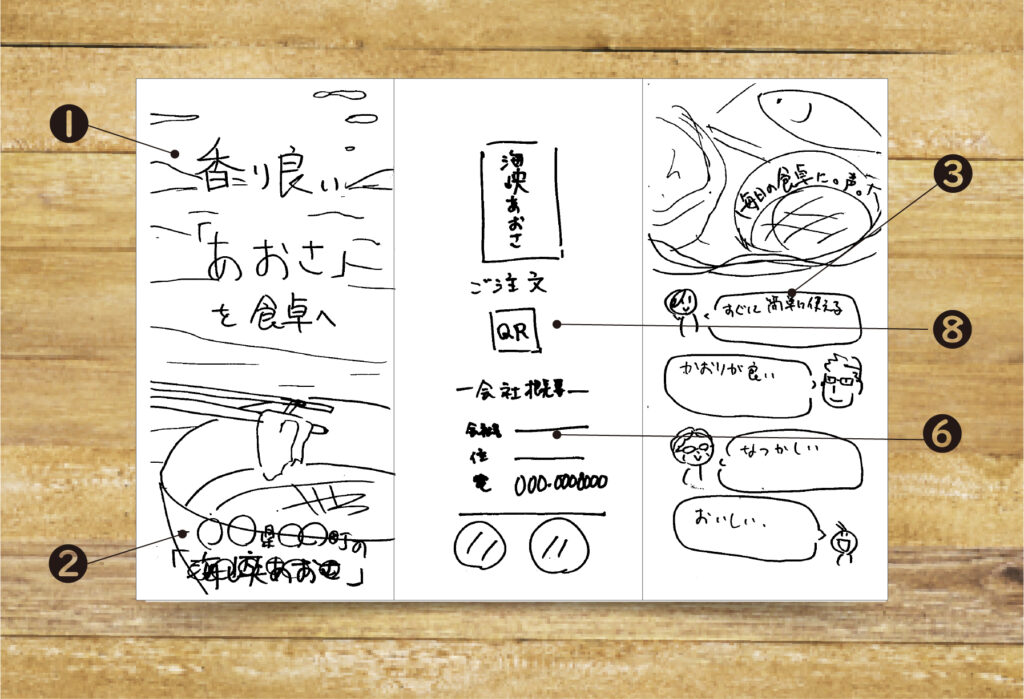 ❶
香り良い
「あおさ」
を食卓へ
❷
〇〇県〇〇町の
「海峡あおさ」
海峡あおさ
ご注文
QR
❽
ー会社概要ー
会社名
❻
住
電 000-0000000
「毎日の食卓に。声。」
❸
すぐに簡単に使える
かおりが良い
なつかしい
おいしい、